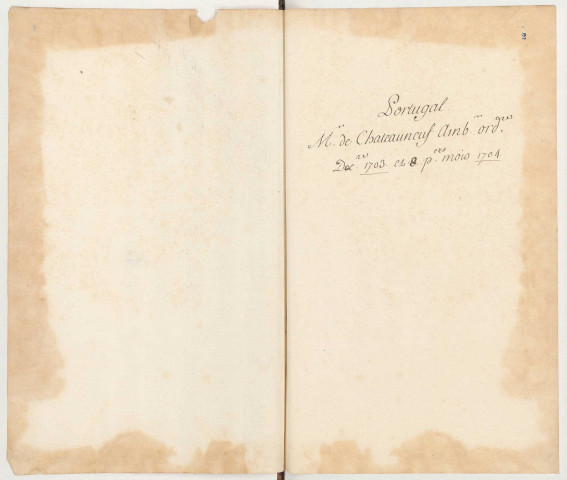 2
Portugal
Mr. de Chateauneuf Ambr. ordre.
Dexbre. 1703. et 8 pers. mois 1704